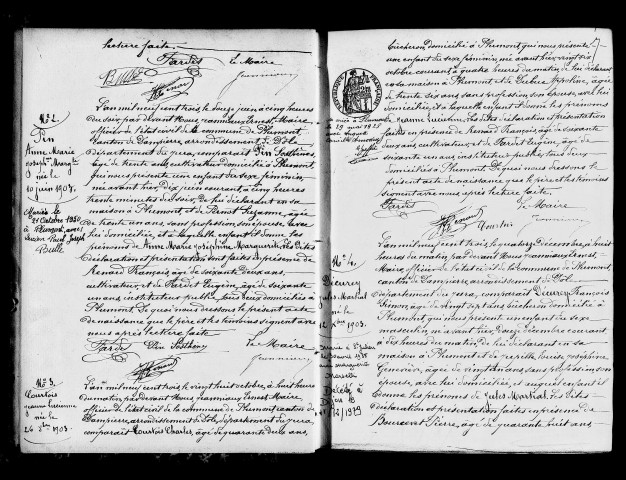 lecture faite.
Pardet le Maire
N° 2.
Pin
Anne Marie
née le
10 juin 1903.
Mariée le
21 Octobre 1930
à Plumont, avec
Paul Joseph
Brulle
L'an mil neuf cent trois le douze juin à cinq heures
du soir, par devant Nous Jeanmaux Ernest, Maire
officier de l'état civil de la commune de Plumont,
canton de Dampierre, arrondissement de Dôle
département du Jura, comparait Pin Sosthène,
âgé de trente ans, cultivateur domicilié à Plumont
qui nous présente un enfant du sexe féminin,
née avant hier dix juin courant à cinq heures
trente minutes du soir, de lui déclarant en sa
maison à Plumont, et de Pernot Suzanne, âgée
de trente un ans, sans profession, son épouse, avec
lui domiciliée, et à laquelle enfant il donne les
prénoms de Anne Marie Joséphine Marguerite. Les dites
déclaration et présentation ont faites en présence de
Renard François, âgé de soixante deux ans,
cultivateur, et de Pardet Eugène, âgé de soixante
un ans, instituteur public, tous deux domiciliés à
Plumont. De quoi nous dressons le présent acte
de naissance que le père et les témoins signent avec
nous après lecture faite.
Pardet Pin Sosthène Le Maire
N° 3.
Courtois
Jeanne Lucienne
née le
26 8bre 1903.
L'an mil neuf cent trois le vingt huit octobre, à huit heures
du matin, par devant Nous Jeanmaux Ernest Maire
officier de l'état civil de la commune de Plumont canton de
Dampierre, arrondissement de Dôle, département du Jura,
comparait Courtois Charles, âgé de quarante deux ans,
bûcheron domicilié à Plumont qui nous présente
une enfant du sexe féminin, née avant hier vingt six
octobre courant à quatre heures du matin, de lui déclarant
en sa maison à Plumont, et de Apoline, âgée
de trente six ans sans profession son épouse, avec lui
domiciliée, et à laquelle enfant il donne les prénoms
de Jeanne Lucienne. Les dites déclaration et présentation
faites en présence de Renard François, âgé de
soixante deux ans, cultivateur, et de Pardet Eugène, âgé de
soixante un ans, instituteur public, tous deux
domiciliés à Plumont. De quoi nous dressons le présent
acte de naissance que le père et les témoins
signent avec nous après lecture faite.
le 29 mai 1925
Pardet Le Maire
Courtois
N° 4.
Décurey
Jules Martial
né le
1903.
L'an mil neuf cent trois le quatorze Décembre, à huit
heures du matin, par devant Nous Jeanmaux Ernest
Maire, officier de l'état civil de la commune de Plumont,
canton de Dampierre, arrondissement de Dôle
Département du Jura, comparait Décurey François
Simon, âgé de vingt sept ans domicilié à
Plumont, qui nous présente un enfant du sexe
masculin, né avant hier douze décembre courant
à dix heures du matin, de lui déclarant en sa
maison à Plumont, et de Louise Joséphine
Geneviève, âgée de vingt ans sans profession son
épouse, avec lui domiciliée, et auquel enfant il
donne les prénoms de Jules Martial. Les dites
déclaration et présentation, faites en présence de
Bourceret Pierre, âgé de quarante huit ans